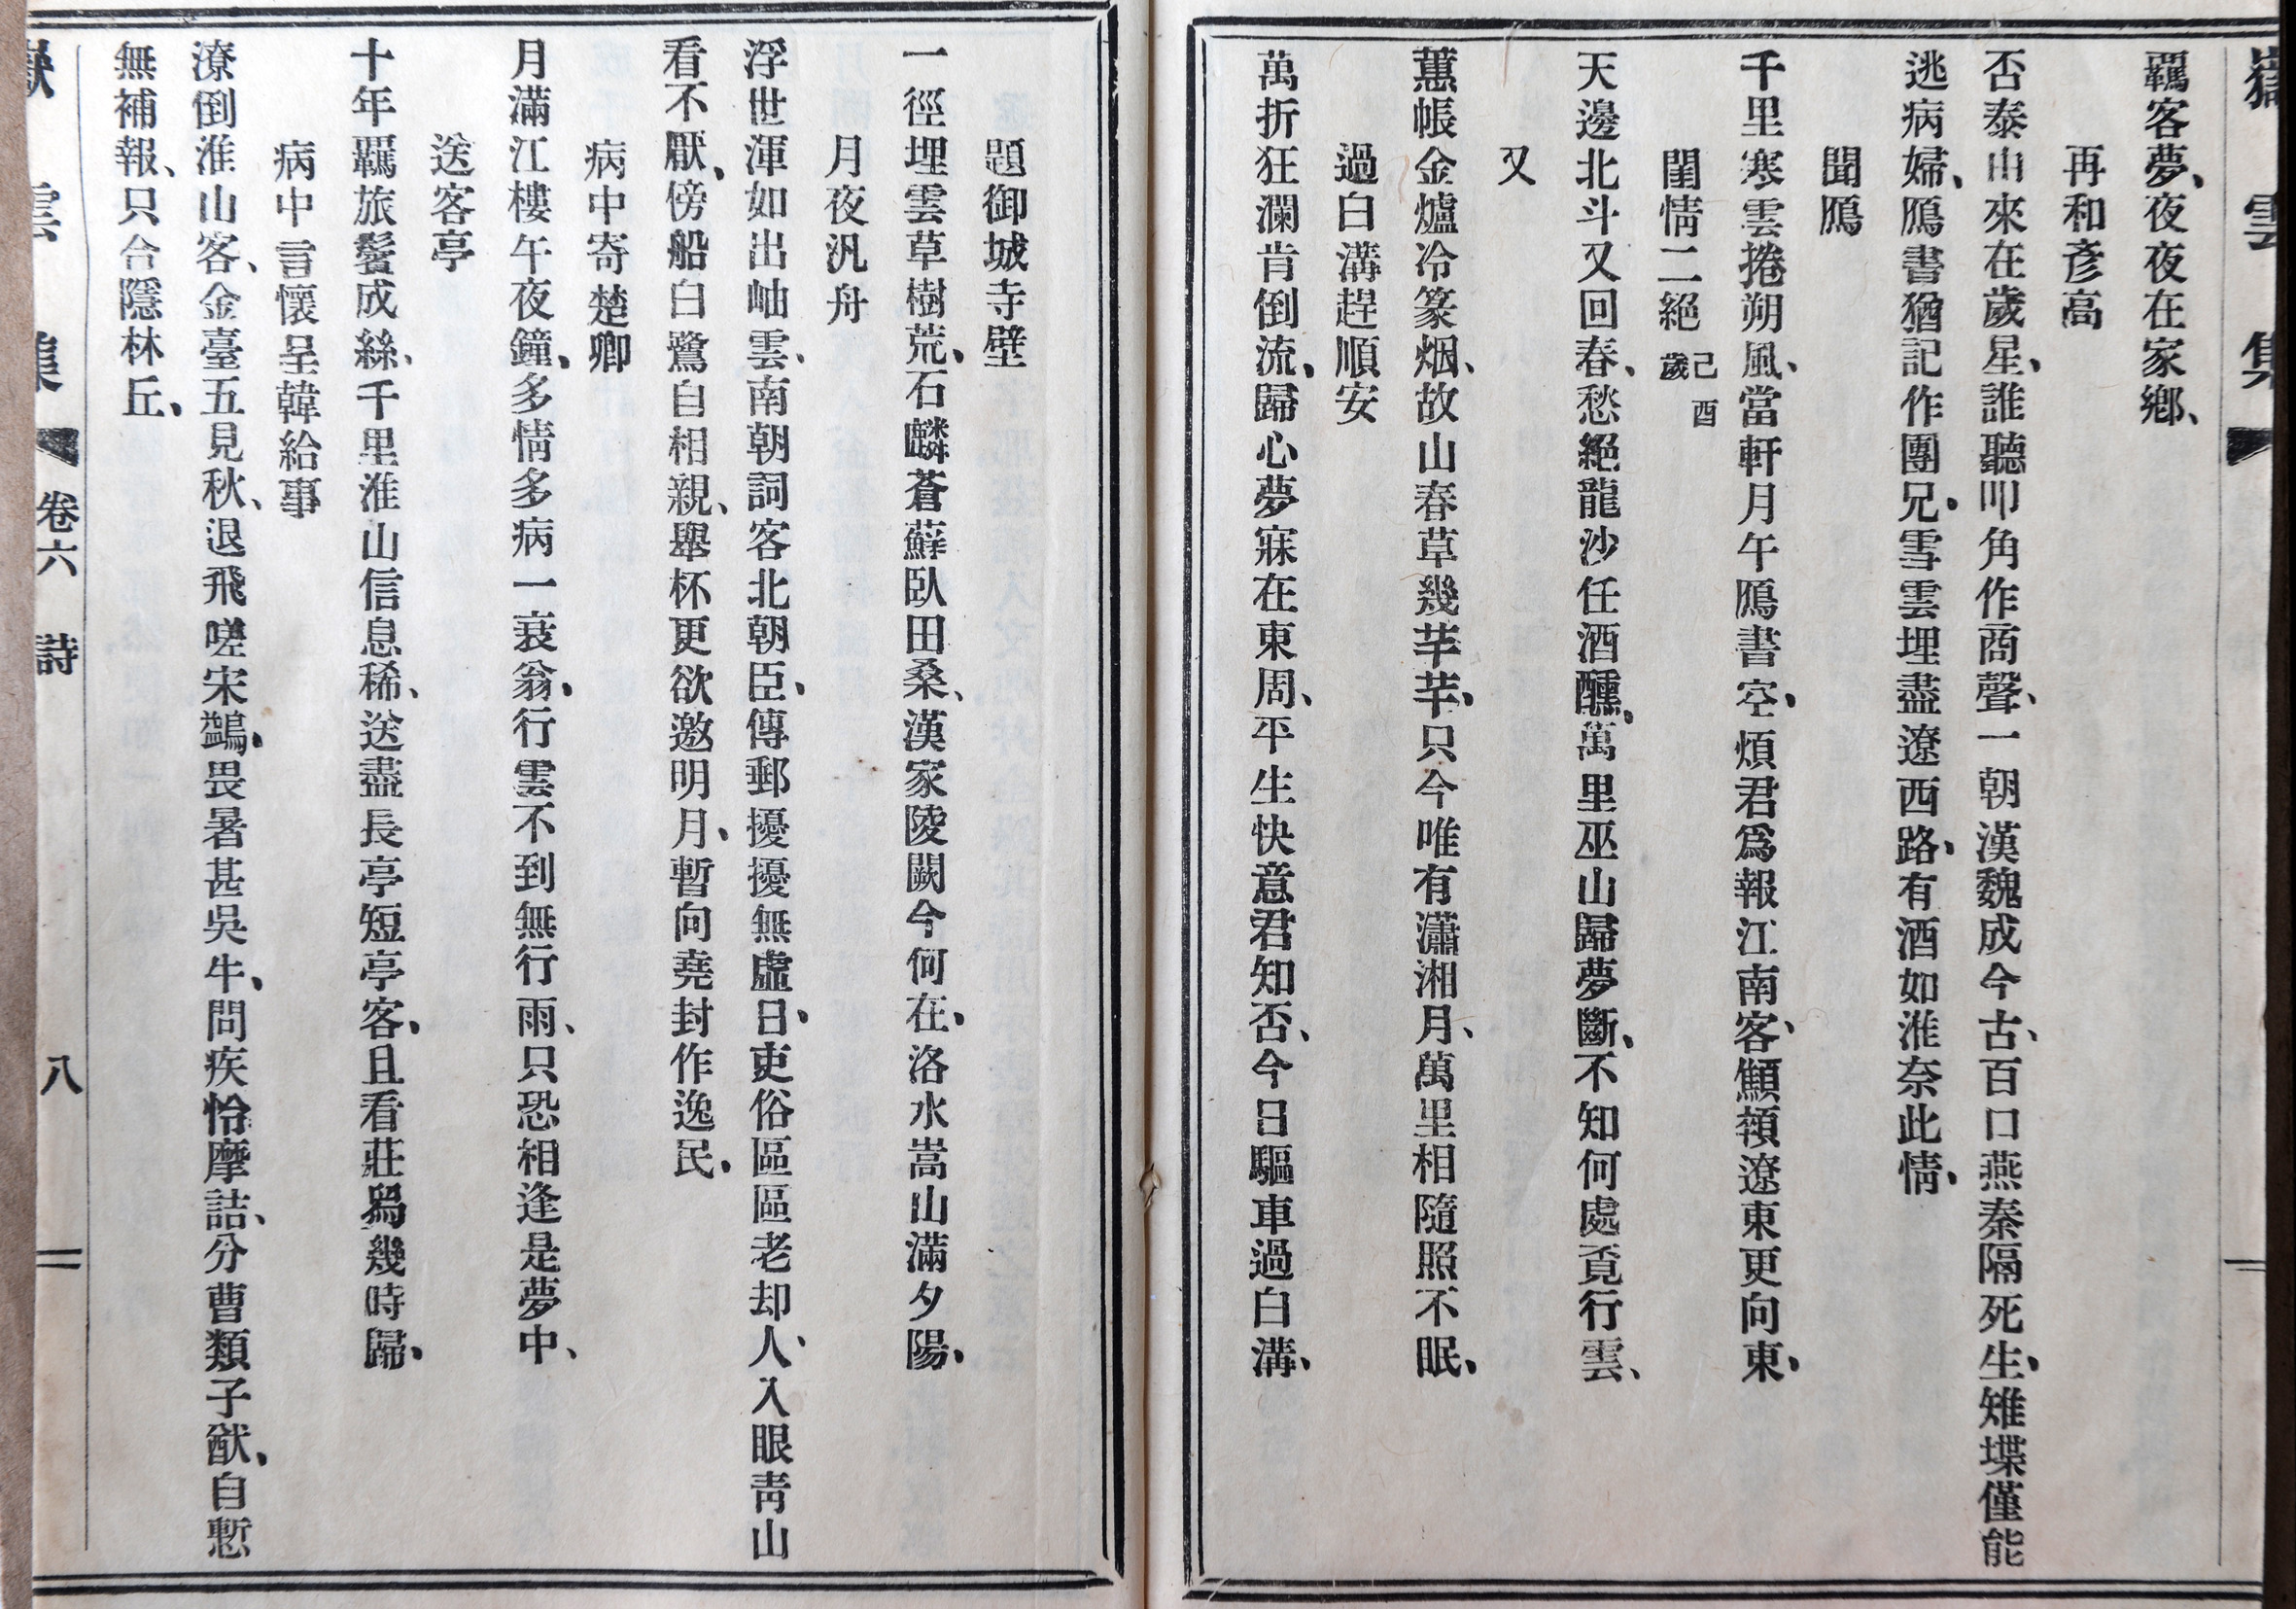 嶽雲集
羈客夢、夜夜在家鄉、
再和彥高
否泰由來在歲星、誰聽叩角作商聲、一朝漢魏成今古、百口燕秦隔死生、雉堞僅能
逃病婦、鴈書猶記作團兄、雪雲埋盡遼西路、有酒如淮奈此情、
聞鴈
千里寒雲捲朔風、當軒月午鴈書空、煩君爲報江南客、顦顇遼東更向東、
閨情二絕己酉歲
天邊北斗又回春、愁絕龍沙任酒醺、萬里巫山歸夢斷、不知何處覓行雲、
又
蕙帳金爐冷篆烟、故山春草幾芊芊、只今唯有瀟湘月、萬里相隨照不眠、
過白溝趕順安
萬折狂瀾肯倒流、歸心夢寐在東周、平生快意君知否、今日驅車過白溝、
題御城寺壁
一徑埋雲草樹荒、石麟蒼蘚臥田桑、漢家陵闕今何在、洛水嵩山滿夕陽、
月夜汎舟
浮世渾如出岫雲、南朝詞客北朝臣、傳郵擾擾無虛日、吏俗區區老却人、入眼青山
看不厭、傍船白鷺自相親、舉杯更欲邀明月、暫向堯封作逸民、
病中寄楚卿
月滿江樓午夜鐘、多情多病一衰翁、行雲不到無行雨、只恐相逢是夢中、
送客亭
十年羈旅鬢成絲、千里淮山信息稀、送盡長亭短亭客、且看莊舄幾時歸、
病中言懷呈韓給事
潦倒淮山客、金臺五見秋、退飛嗟宋鷁、畏暑甚吳牛、問疾怜摩詰、分曹類子猷、自慙
無補報、只合隱林丘、
嶽雲集 卷六 詩 八